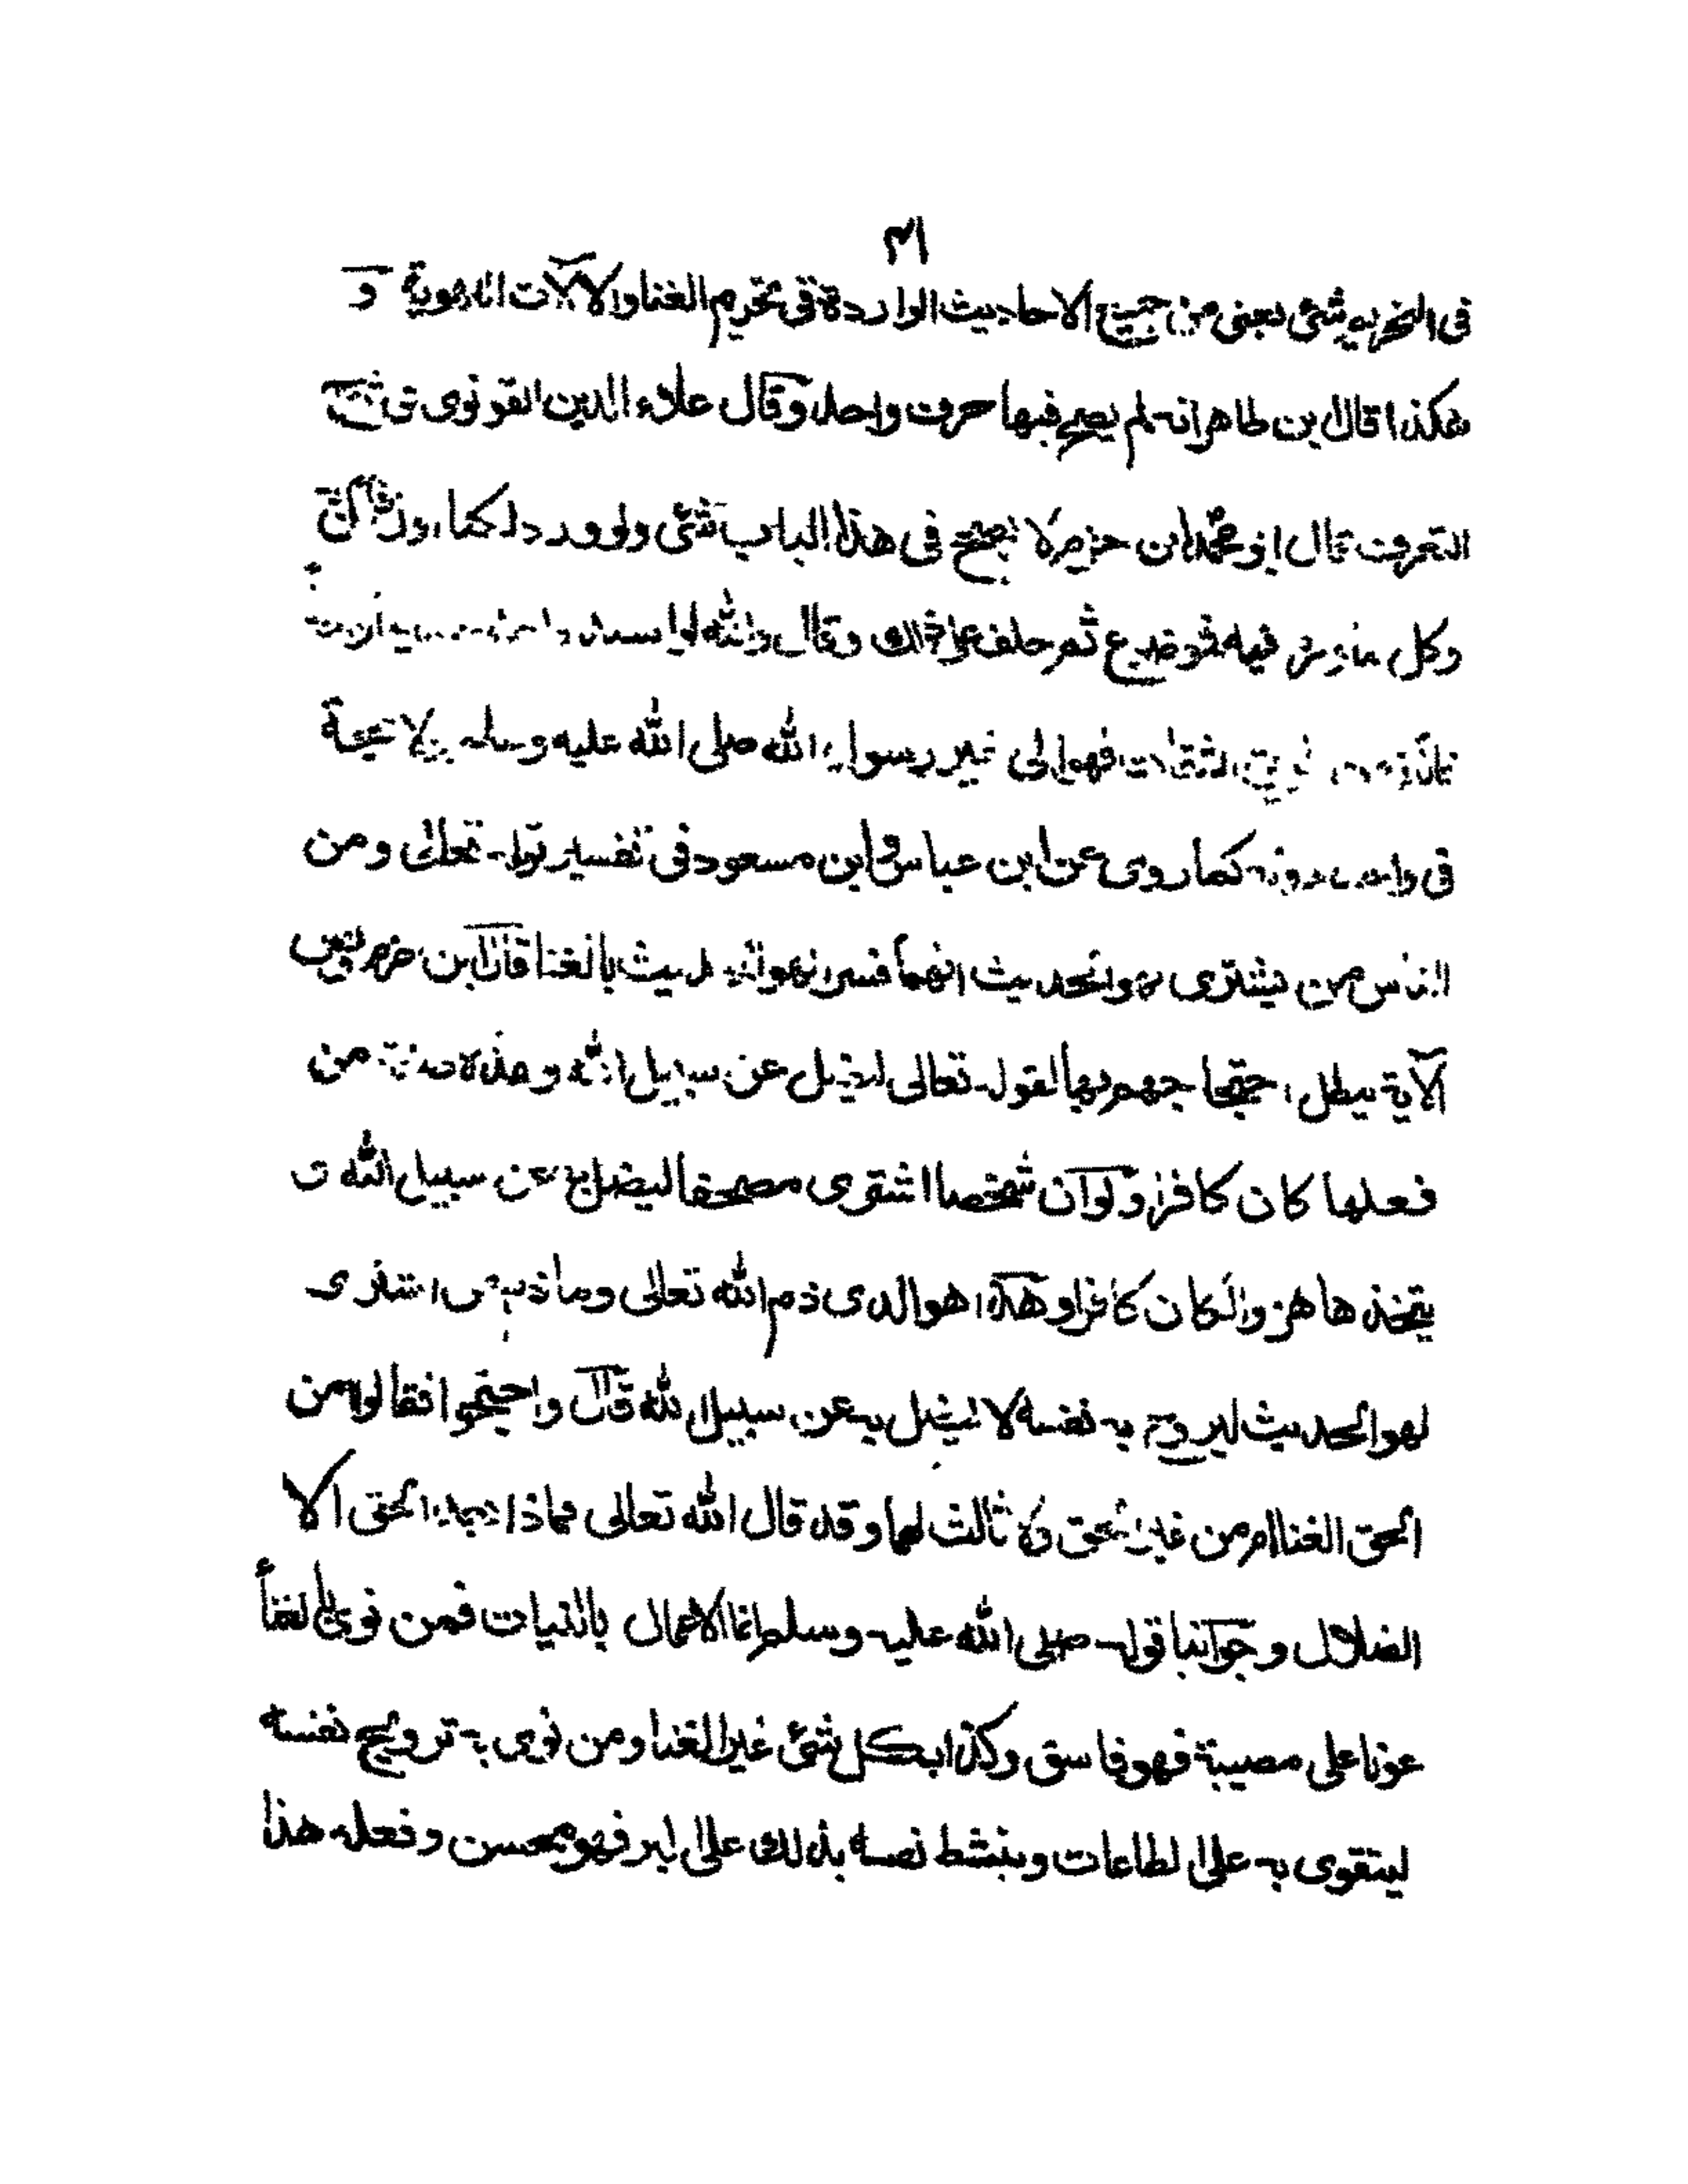 ٣١
فى التحريم شئ يعنى من جميع الاحاديث الواردة فى تحريم الغنا والالآت اللهوية و
هكذا قال ابن طاهر انه لم يصح فيها حرف واحد وقال علاء الدين القونوى فى شرح
التعرف قال ابو محمد ابن حزم لا يصح فى هذا الباب شئ ولو ورد لكنا اول
وكل فيه موضوع ثم حلف على ذلك وقال والله لو
الثقات فهو الى غير رسول الله صلى الله عليه وسلم ولا حجة
فى دونه كما روى عن ابن عباس وابن مسعود فى تفسير قوله تعالى ومن
الناس من يشترى لهو الحديث انهما فسرا لهو الحديث بالغنا قال ابن حزم ونص
الآية يبطل احتجاجهم بها لقوله تعالى ليضل عن سبيل الله وهذه صفة من
فعلها كان كافرا ولو ان شخصا اشترى مصحفا ليضل به عن سبيل الله و
يتخذها هزوا لكان كافرا وهذا هو الذى ذم الله تعالى وما ذم من اشترى
لهو الحديث ليروح به نفسه لا ليضل به عن سبيل الله قال واحتجوا فقالوا من
الحق الغنا ام من غير الحق ولا ثالث لهما وقد قال الله تعالى فماذا بعد الحق الا
الضلال وجوابنا قوله صلى الله عليه وسلم انما الاعمال بالنيات فمن نوى بالغنا
عونا على مصيبة فهو فاسق وكذا بكل شئ غير الغنا ومن نوى به ترويح نفسه
ليتقوى به على الطاعات وينشط نفسه بذلك على البر فهو محسن وفعله هذا